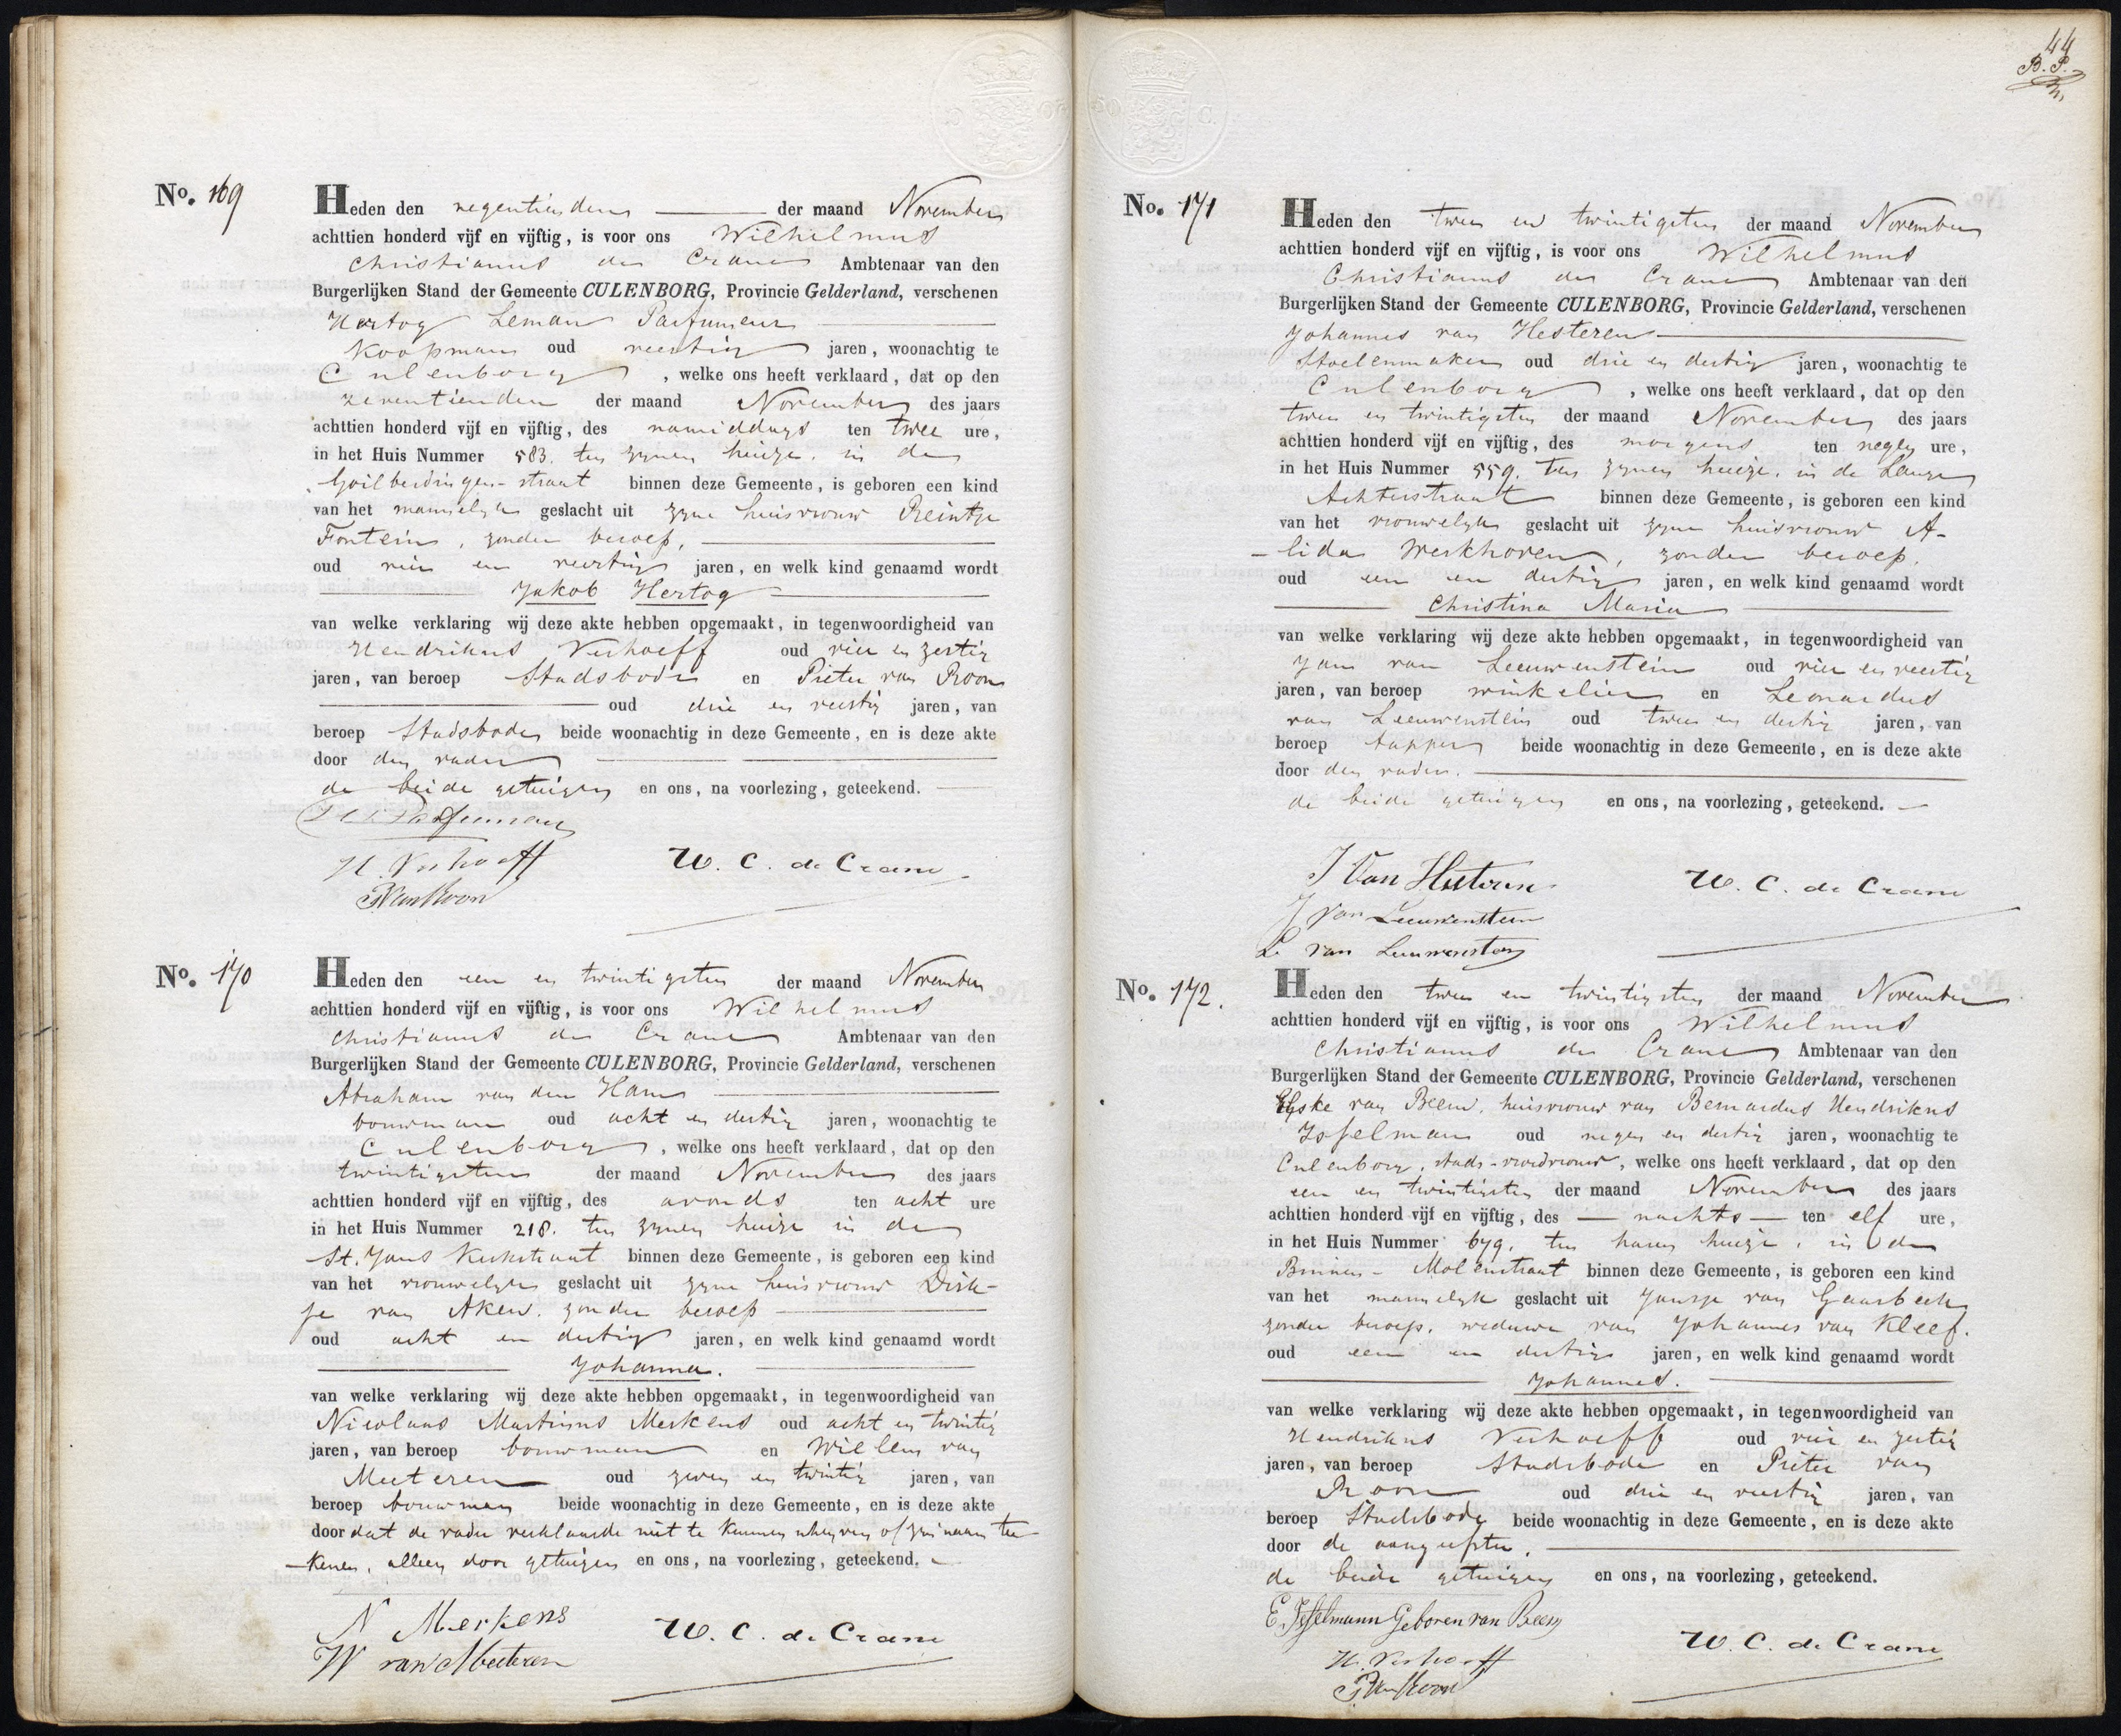 No. 169
Heden den negentienden der maand November
achttien honderd vijf en vijftig, is voor ons Wilhelmus
Christianus de Crane Ambtenaar van den
Burgerlijken Stand der Gemeente CULENBORG, Provincie Gelderland, verschenen
Hartog Leman Parfumeur
Koopman oud veertig jaren, woonachtig te
Culenborg, welke ons heeft verklaard, dat op den
zeventienden der maand November des jaars
achttien honderd vijf en vijftig, des namiddags ten twee ure,
in het Huis Nummer 583. ten zynen huize. in de
Goilberdinger-straat binnen deze Gemeente, is geboren een kind
van het mannelyk geslacht uit zyne huisvrouw Reintje
Fontein, zonder beroep,
oud vier en veertig jaren, en welk kind genaamd wordt
Jakob Hertog
van welke verklaring wij deze akte hebben opgemaakt, in tegenwoordigheid van
Hendrikus Verhoeff oud vier en zestig
jaren, van beroep Stadsbode en Pieter van Roon
oud drie en veertig jaren, van
beroep Stadsbode beide woonachtig in deze Gemeente, en is deze akte
door den vader
de beide getuigen en ons, na voorlezing, geteekend.
H. Verhoeff W. C. de Crane
P van Roon
No. 170
Heden den een en twintigsten der maand November
achttien honderd vijf en vijftig, is voor ons Wilhelmus
Christianus de Crane Ambtenaar van den
Burgerlijken Stand der Gemeente CULENBORG, Provincie Gelderland, verschenen
Abraham van den Ham
bouwman oud acht en dertig jaren, woonachtig te
Culenborg, welke ons heeft verklaard, dat op den
twintigsten der maand November des jaars
achttien honderd vijf en vijftig, des avonds ten acht ure
in het Huis Nummer 218. ten zynen huize in de
St. Jans Kerkstraat binnen deze Gemeente, is geboren een kind
van het vrouwelyk geslacht uit zyne huisvrouw Dirk-
je van Aken. zonder beroep
oud acht en dertig jaren, en welk kind genaamd wordt
Johanna.
van welke verklaring wij deze akte hebben opgemaakt, in tegenwoordigheid van
Nicolaas Martinus Merkens oud acht en twintig
jaren, van beroep bouwman en Willem van
Meeteren oud zeven en twintig jaren, van
beroep bouwman beide woonachtig in deze Gemeente, en is deze akte
door dat de vader verklaarde niet te kunnen schryven of zyn naam tee-
kenen, alleen door getuigen en ons, na voorlezing, geteekend.
N Merkens W. C. de Crane
W van Meeteren
44
No. 171
Heden den twee en twintigsten der maand November
achttien honderd vijf en vijftig, is voor ons Wilhelmus
Christianus de Crane Ambtenaar van den
Burgerlijken Stand der Gemeente CULENBORG, Provincie Gelderland, verschenen
Johannes van Hesteren
Stoelenmaker oud drie en dertig jaren, woonachtig te
Culenborg, welke ons heeft verklaard, dat op den
twee en twintigsten der maand November des jaars
achttien honderd vijf en vijftig, des morgens ten negen ure,
in het Huis Nummer 559. ten zynen huize. in de Lange
Achterstraat binnen deze Gemeente, is geboren een kind
van het vrouwelyk geslacht uit zyne huisvrouw A-
-lida Werkhoven, zonder beroep.
oud een en dertig jaren, en welk kind genaamd wordt
Christina Maria
van welke verklaring wij deze akte hebben opgemaakt, in tegenwoordigheid van
Jan van Leeuwenstein oud vier en veertig
jaren, van beroep winkelier en Leonardus
van Leeuwenstein oud twee en dertig jaren, van
beroep tapper beide woonachtig in deze Gemeente, en is deze akte
door den vader.
de beide getuigen en ons, na voorlezing, geteekend.
J Van Hesteren W. C. de Crane
J van Leeuwenstein
L van Leeuwenstein
No. 172.
Heden den twee en twintigsten der maand November
achttien honderd vijf en vijftig, is voor ons Wilhelmus
Christianus de Crane Ambtenaar van den
Burgerlijken Stand der Gemeente CULENBORG, Provincie Gelderland, verschenen
van Beem. huisvrouw van Bernardus Hendrikus
Isselman oud negen en dertig jaren, woonachtig te
Culenborg, stads-vroedvrouw, welke ons heeft verklaard, dat op den
een en twintigsten der maand November des jaars
achttien honderd vijf en vijftig, des nachts ten elf ure,
in het Huis Nummer 679. ten haren huize, in de
Binnen-Molenstraat binnen deze Gemeente, is geboren een kind
van het mannelyk geslacht uit Jansje van Gaasbeek
zonder beroep. weduwe van Johannes van Kleef.
oud een en dertig jaren, en welk kind genaamd wordt
Johannes.
van welke verklaring wij deze akte hebben opgemaakt, in tegenwoordigheid van
Hendrikus Verhoeff oud vier en zestig
jaren, van beroep Stadsbode en Pieter van
Roon oud drie en veertig jaren, van
beroep Stadsbode beide woonachtig in deze Gemeente, en is deze akte
door de aangeefster.
de beide getuigen en ons, na voorlezing, geteekend.
E. Isselmann Geboren van Beem
H. Verhoeff W. C. de Crane
P van Roon